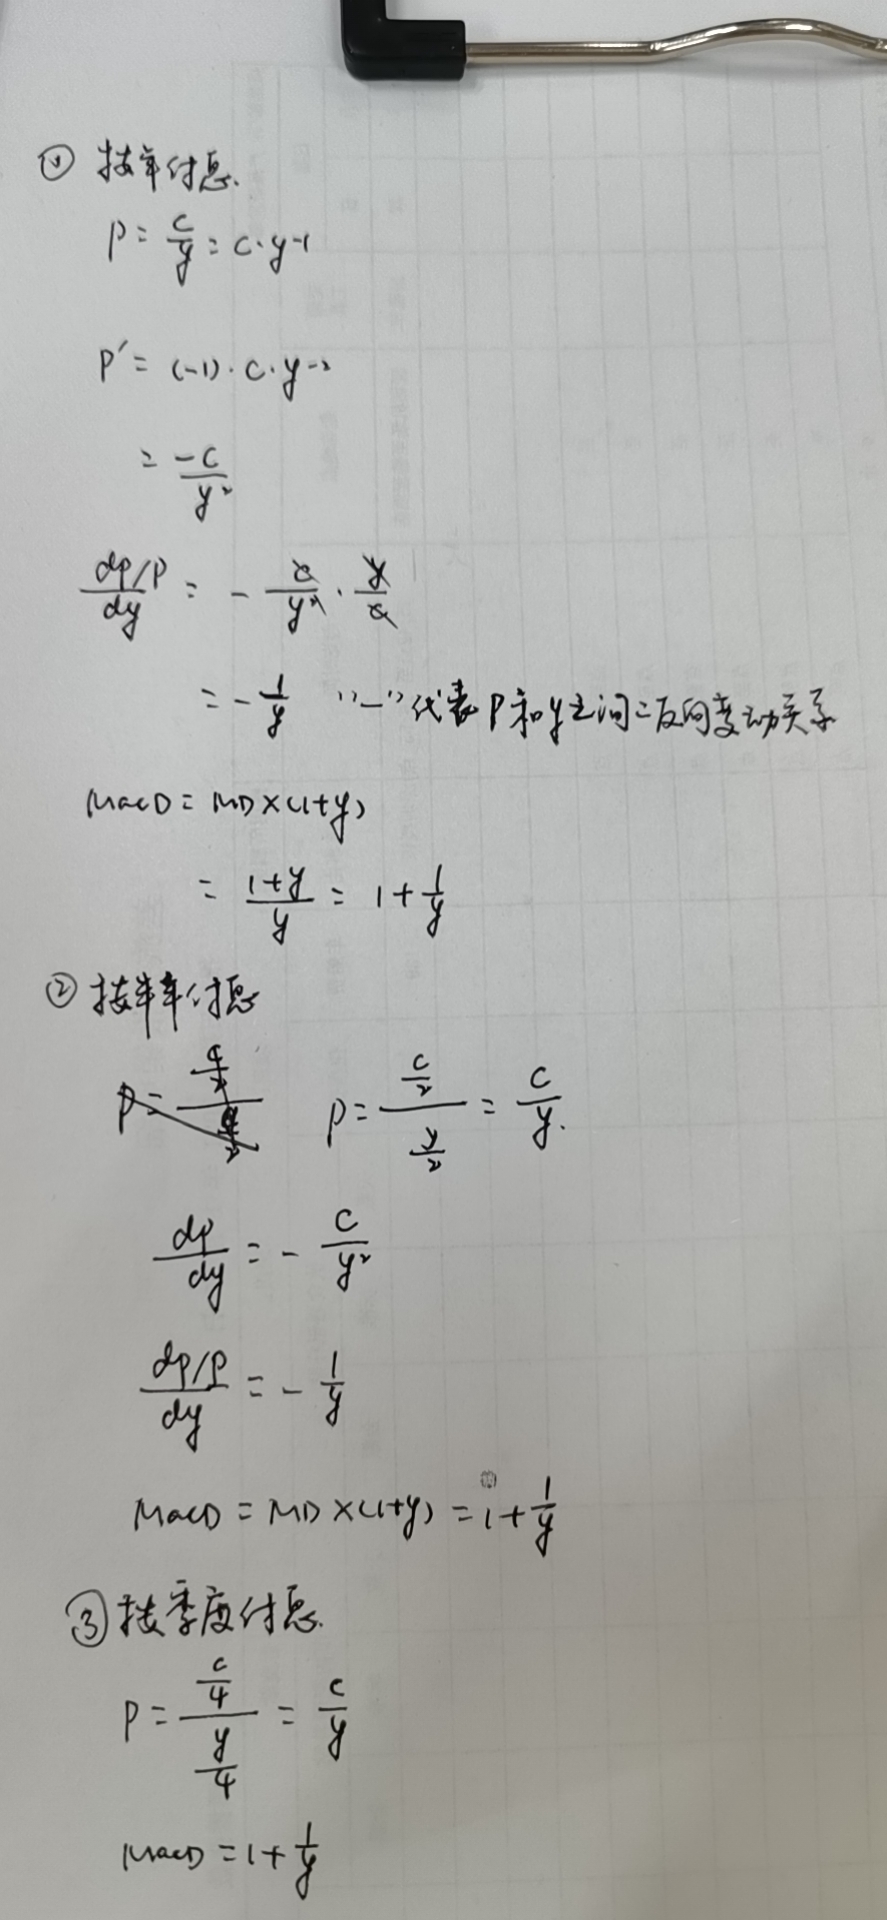 ① 按年付息.
P = c/y = c·y⁻¹
P′ = (-1)·c·y⁻²
= -c/y²
(dp/P)/dy = - c/y² · y/c
= - 1/y “-”代表P和y之间=反向变动关系
MacD = MD×(1+y)
= (1+y)/y = 1 + 1/y
② 按半年付息
P = (c/2)/(y/2) = c/y.
dp/dy = - c/y²
(dp/P)/dy = - 1/y
MacD = MD×(1+y) = 1 + 1/y
③ 按季度付息.
P = (c/4)/(y/4) = c/y
MacD = 1 + 1/y